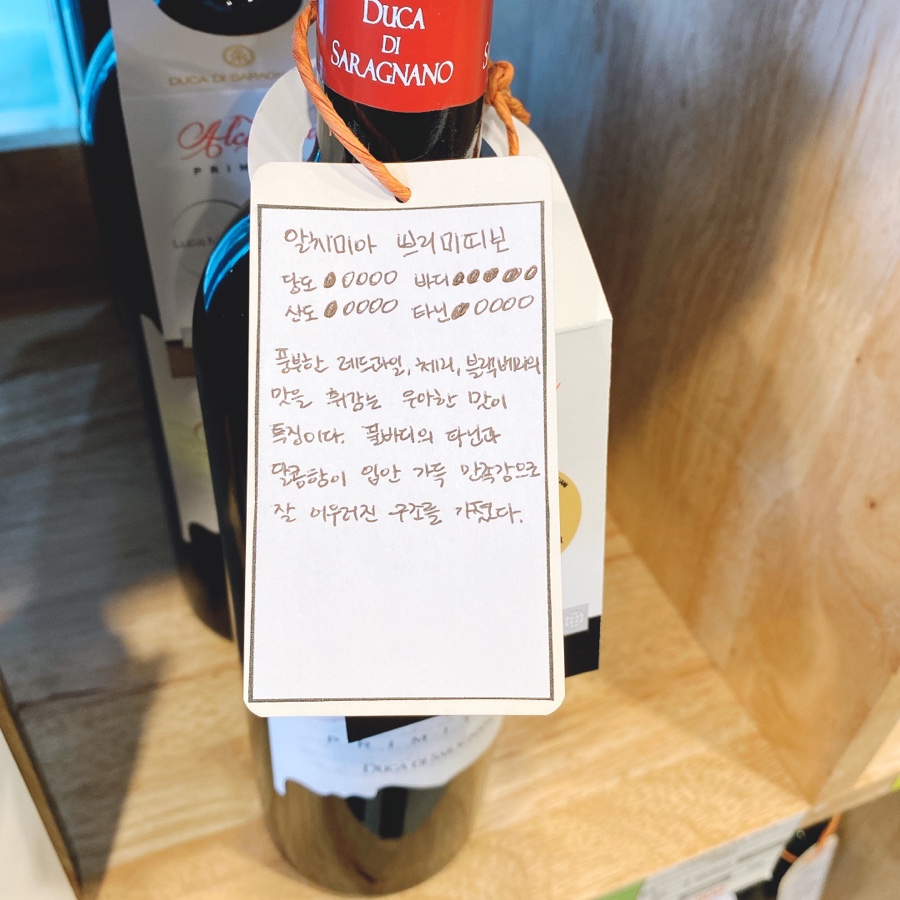 DUCA
DI
SARAGNANO
DUCA DI SARAGN
PRIM
알치미아 쁘리미띠보
당도 ●OOOO 바디 ●●●●●
산도 ●OOOO 타닌 ●OOOO
풍부한 레드과일, 체리, 블랙베리의
맛을 휘감는 우아한 맛이
특징이다. 풀바디의 타닌과
달콤함이 입안 가득 만족감으로
잘 어우러진 구조를 가졌다.
PRIMI
DUCA DI SARAGNANO